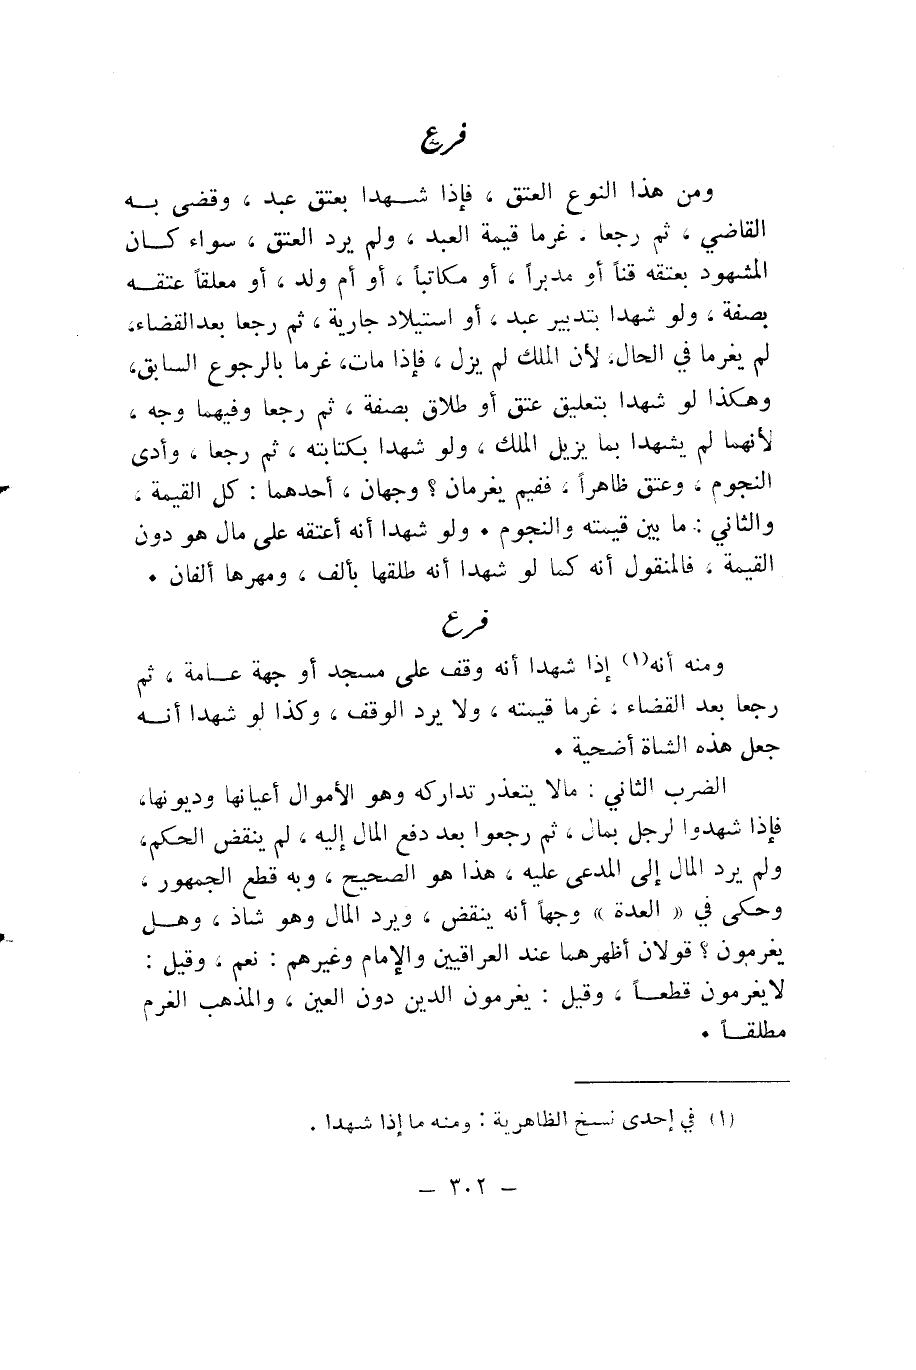 فرع
ومن هذا النوع العتق ، فإذا شـــهدا بعتق عبد ، وقضى بــه
القاضي ، ثم رجعا . غرما قيمة العبد ، ولم يرد العتق ، سواء كــان
المشهود بعتقه قناً أو مدبراً ، أو مكاتباً ، أو أم ولد ، أو معلقاً عتقــه
بصفة ، ولو شهدا بتدبير عبد ، أو استيلاد جارية ، ثم رجعا بعدالقضاء،
لم يغرما في الحال، لأن الملك لم يزل ، فإذا مات، غرما بالرجوع السابق،
وهكذا لو شهدا بتعليق عتق أو طلاق بصفة ، ثم رجعا وفيهما وجه ،
لأنهما لم يشهدا بما يزيل الملك ، ولو شهدا بكتابته ، ثم رجعا ، وأدى
النجوم ، وعتق ظاهراً ، ففيم يغرمان ؟ وجهان ، أحدهما : كل القيمة ،
والثاني : ما بين قيمته والنجوم . ولو شهدا أنه أعتقه على مال هو دون
القيمة ، فالمنقول أنه كما لو شهدا أنه طلقها بألف ، ومهرها ألفان .
فرع
ومنه أنه(١) إذا شهدا أنه وقف على مسجد أو جهة عــامة ، ثم
رجعا بعد القضاء ، غرما قيمته ، ولا يرد الوقف ، وكذا لو شهدا أنــه
جعل هذه الشاة أضحية .
الضرب الثاني : مالا يتعذر تداركه وهو الأموال أعيانها وديونها،
فإذا شهدوا لرجل بمال ، ثم رجعوا بعد دفع المال إليه ، لم ينقض الحكم،
ولم يرد المال إلى المدعى عليه ، هذا هو الصحيح ، وبه قطع الجمهور ،
وحكى في « العدة » وجهاً أنه ينقض ، ويرد المال وهو شاذ ، وهــل
يغرمون ؟ قولان أظهرهما عند العراقيين والإمام وغيرهم : نعم ، وقيل :
لايغرمون قطعــاً ، وقيل : يغرمون الدين دون العين ، والمذهب الغرم
مطلقــاً .
(١) في إحدى نسخ الظاهرية : ومنه ما إذا شهدا .
– ٣٠٢ –